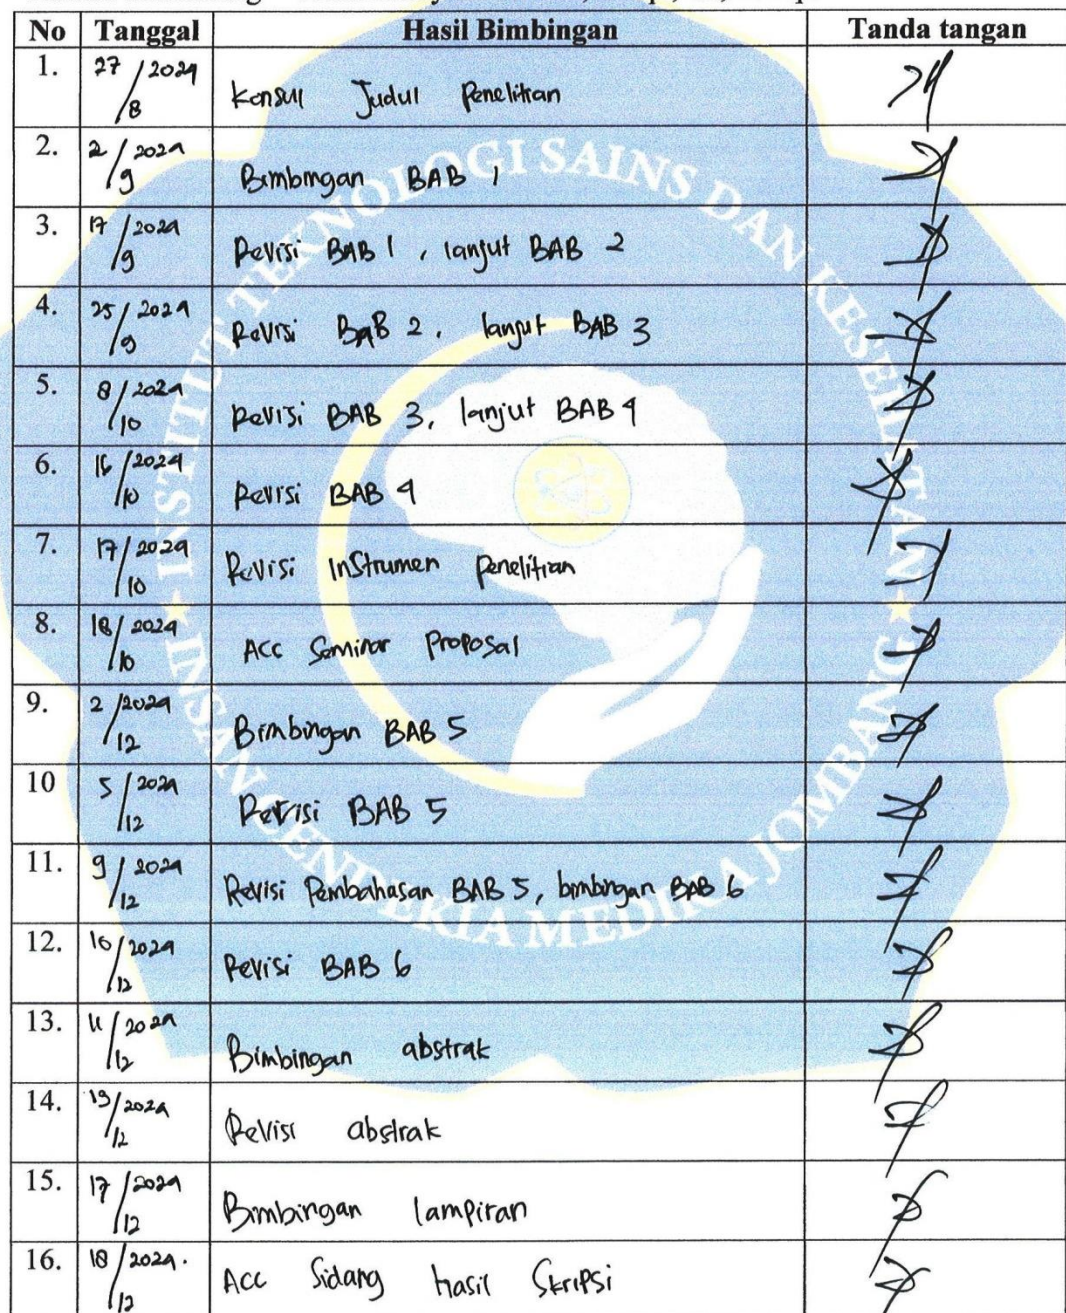 No Tanggal Hasil Bimbingan Tanda tangan
1. 27/8 2024 Konsul Judul Penelitian
2. 2/9 2024 Bimbingan BAB 1
3. 17/9 2024 Revisi BAB 1, lanjut BAB 2
4. 25/9 2024 Revisi BAB 2, lanjut BAB 3
5. 8/10 2024 Revisi BAB 3, lanjut BAB 4
6. 16/10 2024 Revisi BAB 4
7. 17/10 2024 Revisi Instrumen Penelitian
8. 18/10 2024 Acc Seminar Proposal
9. 2/12 2024 Bimbingan BAB 5
10 5/12 2024 Revisi BAB 5
11. 9/12 2024 Revisi Pembahasan BAB 5, bimbingan BAB 6
12. 10/12 2024 Revisi BAB 6
13. 11/12 2024 Bimbingan abstrak
14. 13/12 2024 Revisi abstrak
15. 17/12 2024 Bimbingan lampiran
16. 18/12 2024. Acc Sidang Hasil Skripsi
INSTITUT TEKNOLOGI SAINS DAN KESEHATAN
INSAN CENDEKIA MEDIKA JOMBANG